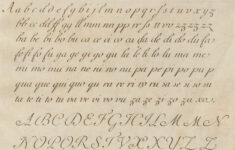 Aabcddefg hijlmnopqrsstuvwxyz
bb cc dd ff gg ll mm nn pp rr ss tt vv zz
ba be bi bo bu ca ce ci co cu da de di do du fa
fe fi fo fu ga ge gi go gu la le li lo lu ma me
mi mo mu na ne ni no nu pa pe pi po pu
qua que qui quo qu ra re ri ro ru sa se si so su
ta te ti to tu va ve vi vo vu za ze zi zo zu
ABCDEFGHILMMN
NOPQRSTUVXYZZ